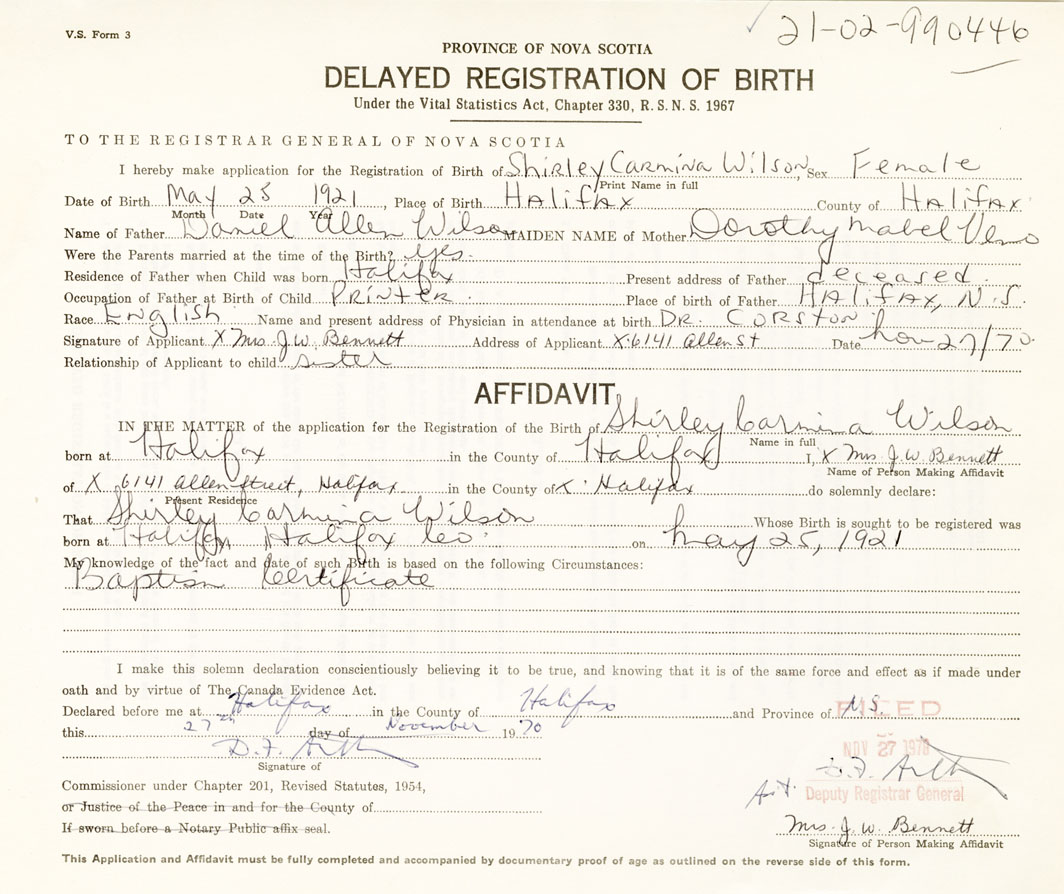 V.S. Form 3
21-02-990446
PROVINCE OF NOVA SCOTIA
DELAYED REGISTRATION OF BIRTH
Under the Vital Statistics Act, Chapter 330, R.S.N.S. 1967
TO THE REGISTRAR GENERAL OF NOVA SCOTIA
I hereby make application for the Registration of Birth of Shirley Carmina Wilson, Sex Female
Print Name in full
Date of Birth May 25 1921, Place of Birth Halifax County of Halifax
Month Date Year
Name of Father Daniel Allen Wilson MAIDEN NAME of Mother Dorothy Mabel Veno
Were the Parents married at the time of the Birth? yes.
Residence of Father when Child was born Halifax Present address of Father deceased.
Occupation of Father at Birth of Child Printer. Place of birth of Father Halifax, N.S.
Race English Name and present address of Physician in attendance at birth Dr. Corston
Signature of Applicant X Mrs. J.W. Bennett Address of Applicant X 6141 Allen St Date Nov 27/70
Relationship of Applicant to child sister
AFFIDAVIT
IN THE MATTER of the application for the Registration of the Birth of Shirley Carmina Wilson
Name in full
born at Halifax in the County of Halifax I, X Mrs. J.W. Bennett
Name of Person Making Affidavit
of X 6141 Allen Street, Halifax in the County of X Halifax do solemnly declare:
Present Residence
That Shirley Carmina Wilson Whose Birth is sought to be registered was
born at Halifax, Halifax Co. on May 25, 1921
My knowledge of the fact and date of such Birth is based on the following Circumstances:
Baptism Certificate
I make this solemn declaration conscientiously believing it to be true, and knowing that it is of the same force and effect as if made under
oath and by virtue of The Canada Evidence Act.
Declared before me at Halifax in the County of Halifax and Province of N.S.
FILED
this 27th day of November 1970
NOV 27 1970
Signature of
Commissioner under Chapter 201, Revised Statutes, 1954,
Deputy Registrar General
or Justice of the Peace in and for the County of
If sworn before a Notary Public affix seal.
Mrs. J. W. Bennett
Signature of Person Making Affidavit
This Application and Affidavit must be fully completed and accompanied by documentary proof of age as outlined on the reverse side of this form.